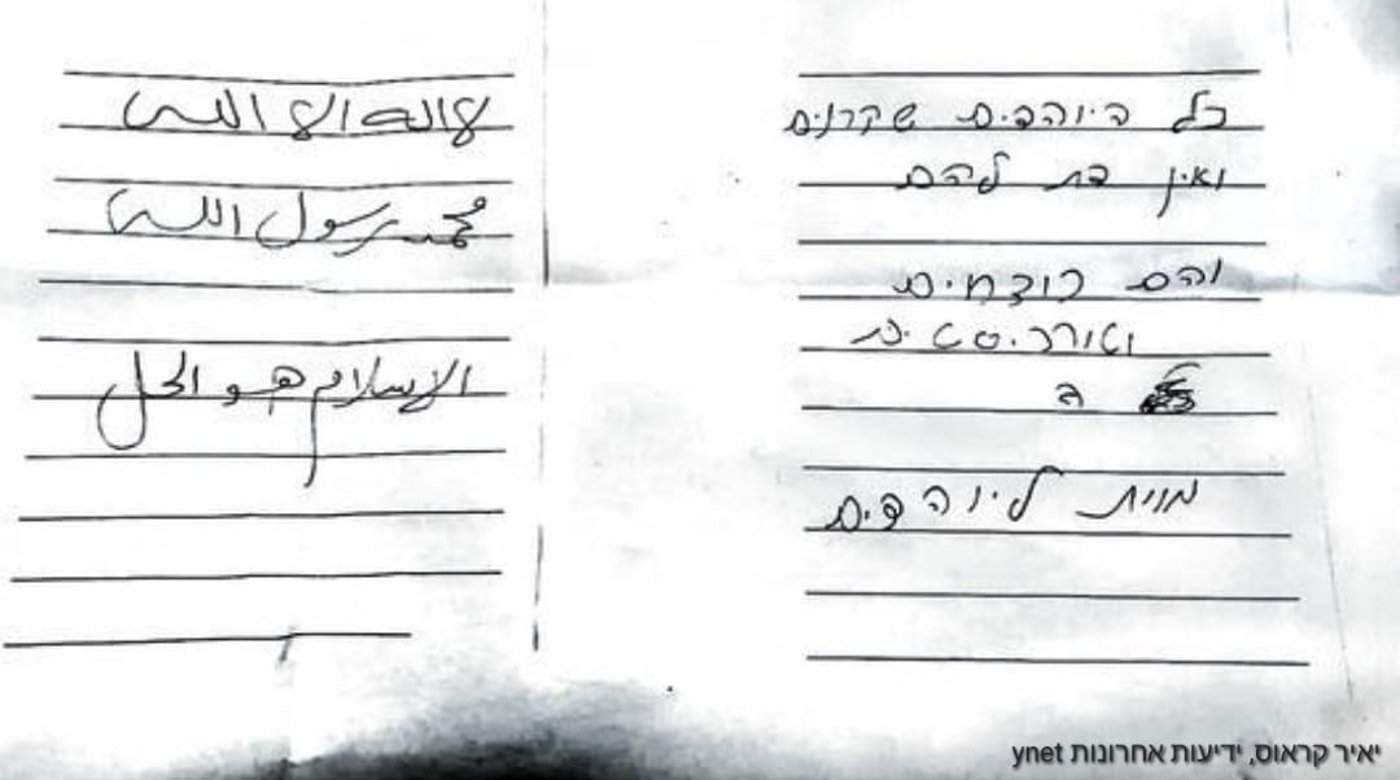 כל היוהדים שקרנים
ואין דת להם
והם רוצחים
וטורריסטים
ה
מוות ליוהדים
لا اله الا الله
محمد رسول الله
الاسلام هو الحل
יאיר קראוס, ידיעות אחרונות ynet